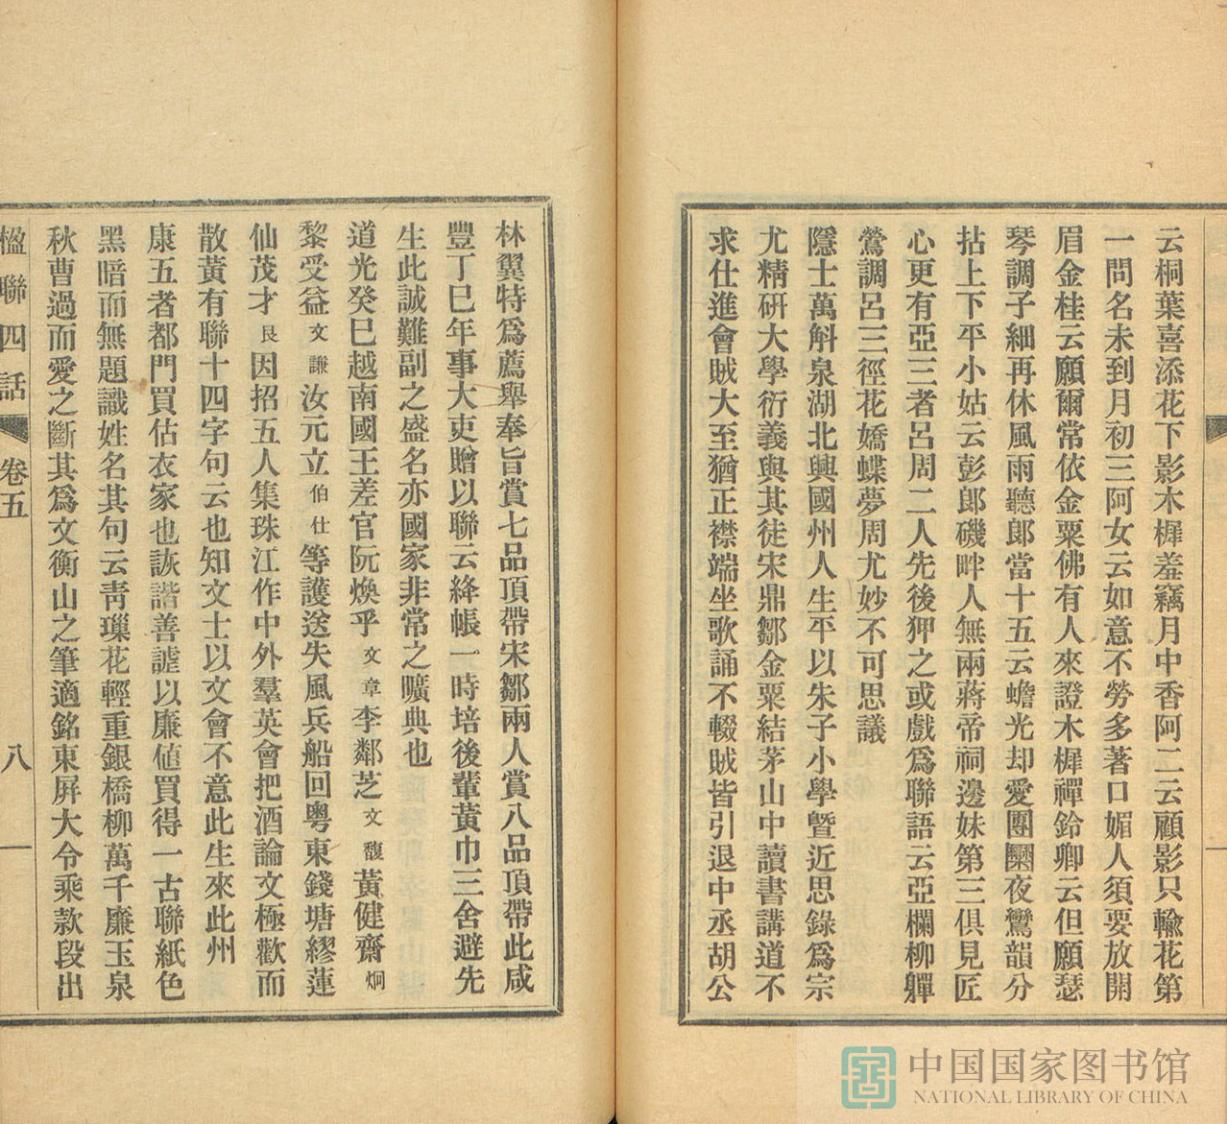 云桐葉喜添花下影木樨羞竊月中香阿二云顧影只輸花第
一問名未到月初三阿女云如意不勞多著口媚人須要放開
眉金桂云願爾常依金粟佛有人來證木樨禪鈴卿云但願瑟
琴調子細再休風雨聽郎當十五云蟾光却愛團圞夜鸞韻分
拈上下平小姑云彭郎磯畔人無兩蔣帝祠邊妹第三俱見匠
心更有亞三者呂周二人先後狎之或戲爲聯語云亞欄柳嚲
鶯調呂三徑花嬌蝶夢周尤妙不可思議
隱士萬斛泉湖北興國州人生平以朱子小學曁近思錄爲宗
尤精硏大學衍義與其徒宋鼎鄒金粟結茅山中讀書講道不
求仕進會賊大至猶正襟端坐歌誦不輟賊皆引退中丞胡公
林翼特爲薦舉奉旨賞七品頂帶宋鄒兩人賞八品頂帶此咸
豐丁巳年事大吏贈以聯云絳帳一時培後輩黃巾三舍避先
生此誠難副之盛名亦國家非常之曠典也
道光癸巳越南國王差官阮煥乎文章李鄰芝文馥黃健齋炯
黎受益文謙汝元立伯仕等護送失風兵船回粵東錢塘繆蓮
仙茂才艮因招五人集珠江作中外羣英會把酒論文極歡而
散黃有聯十四字句云也知文士以文會不意此生來此州
康五者都門買估衣家也詼諧善謔以廉値買得一古聯紙色
黑暗而無題識姓名其句云靑璅花輕重銀橋柳萬千廉玉泉
秋曹過而愛之斷其爲文衡山之筆適銘東屛大令乘款段出
楹聯四話
卷五
八
中国国家图书馆
NATIONAL LIBRARY OF CHINA